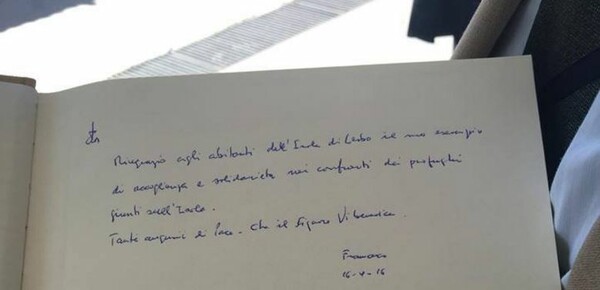 Ringrazio agli abitanti dell'Isola di Lesbo il suo esempio
di accoglienza e solidarietà nei confronti dei profughi
giunti sull'Isola.
Tanti auguri di Pace. Che il Signore Vi benedica
Francesco
16-4-16